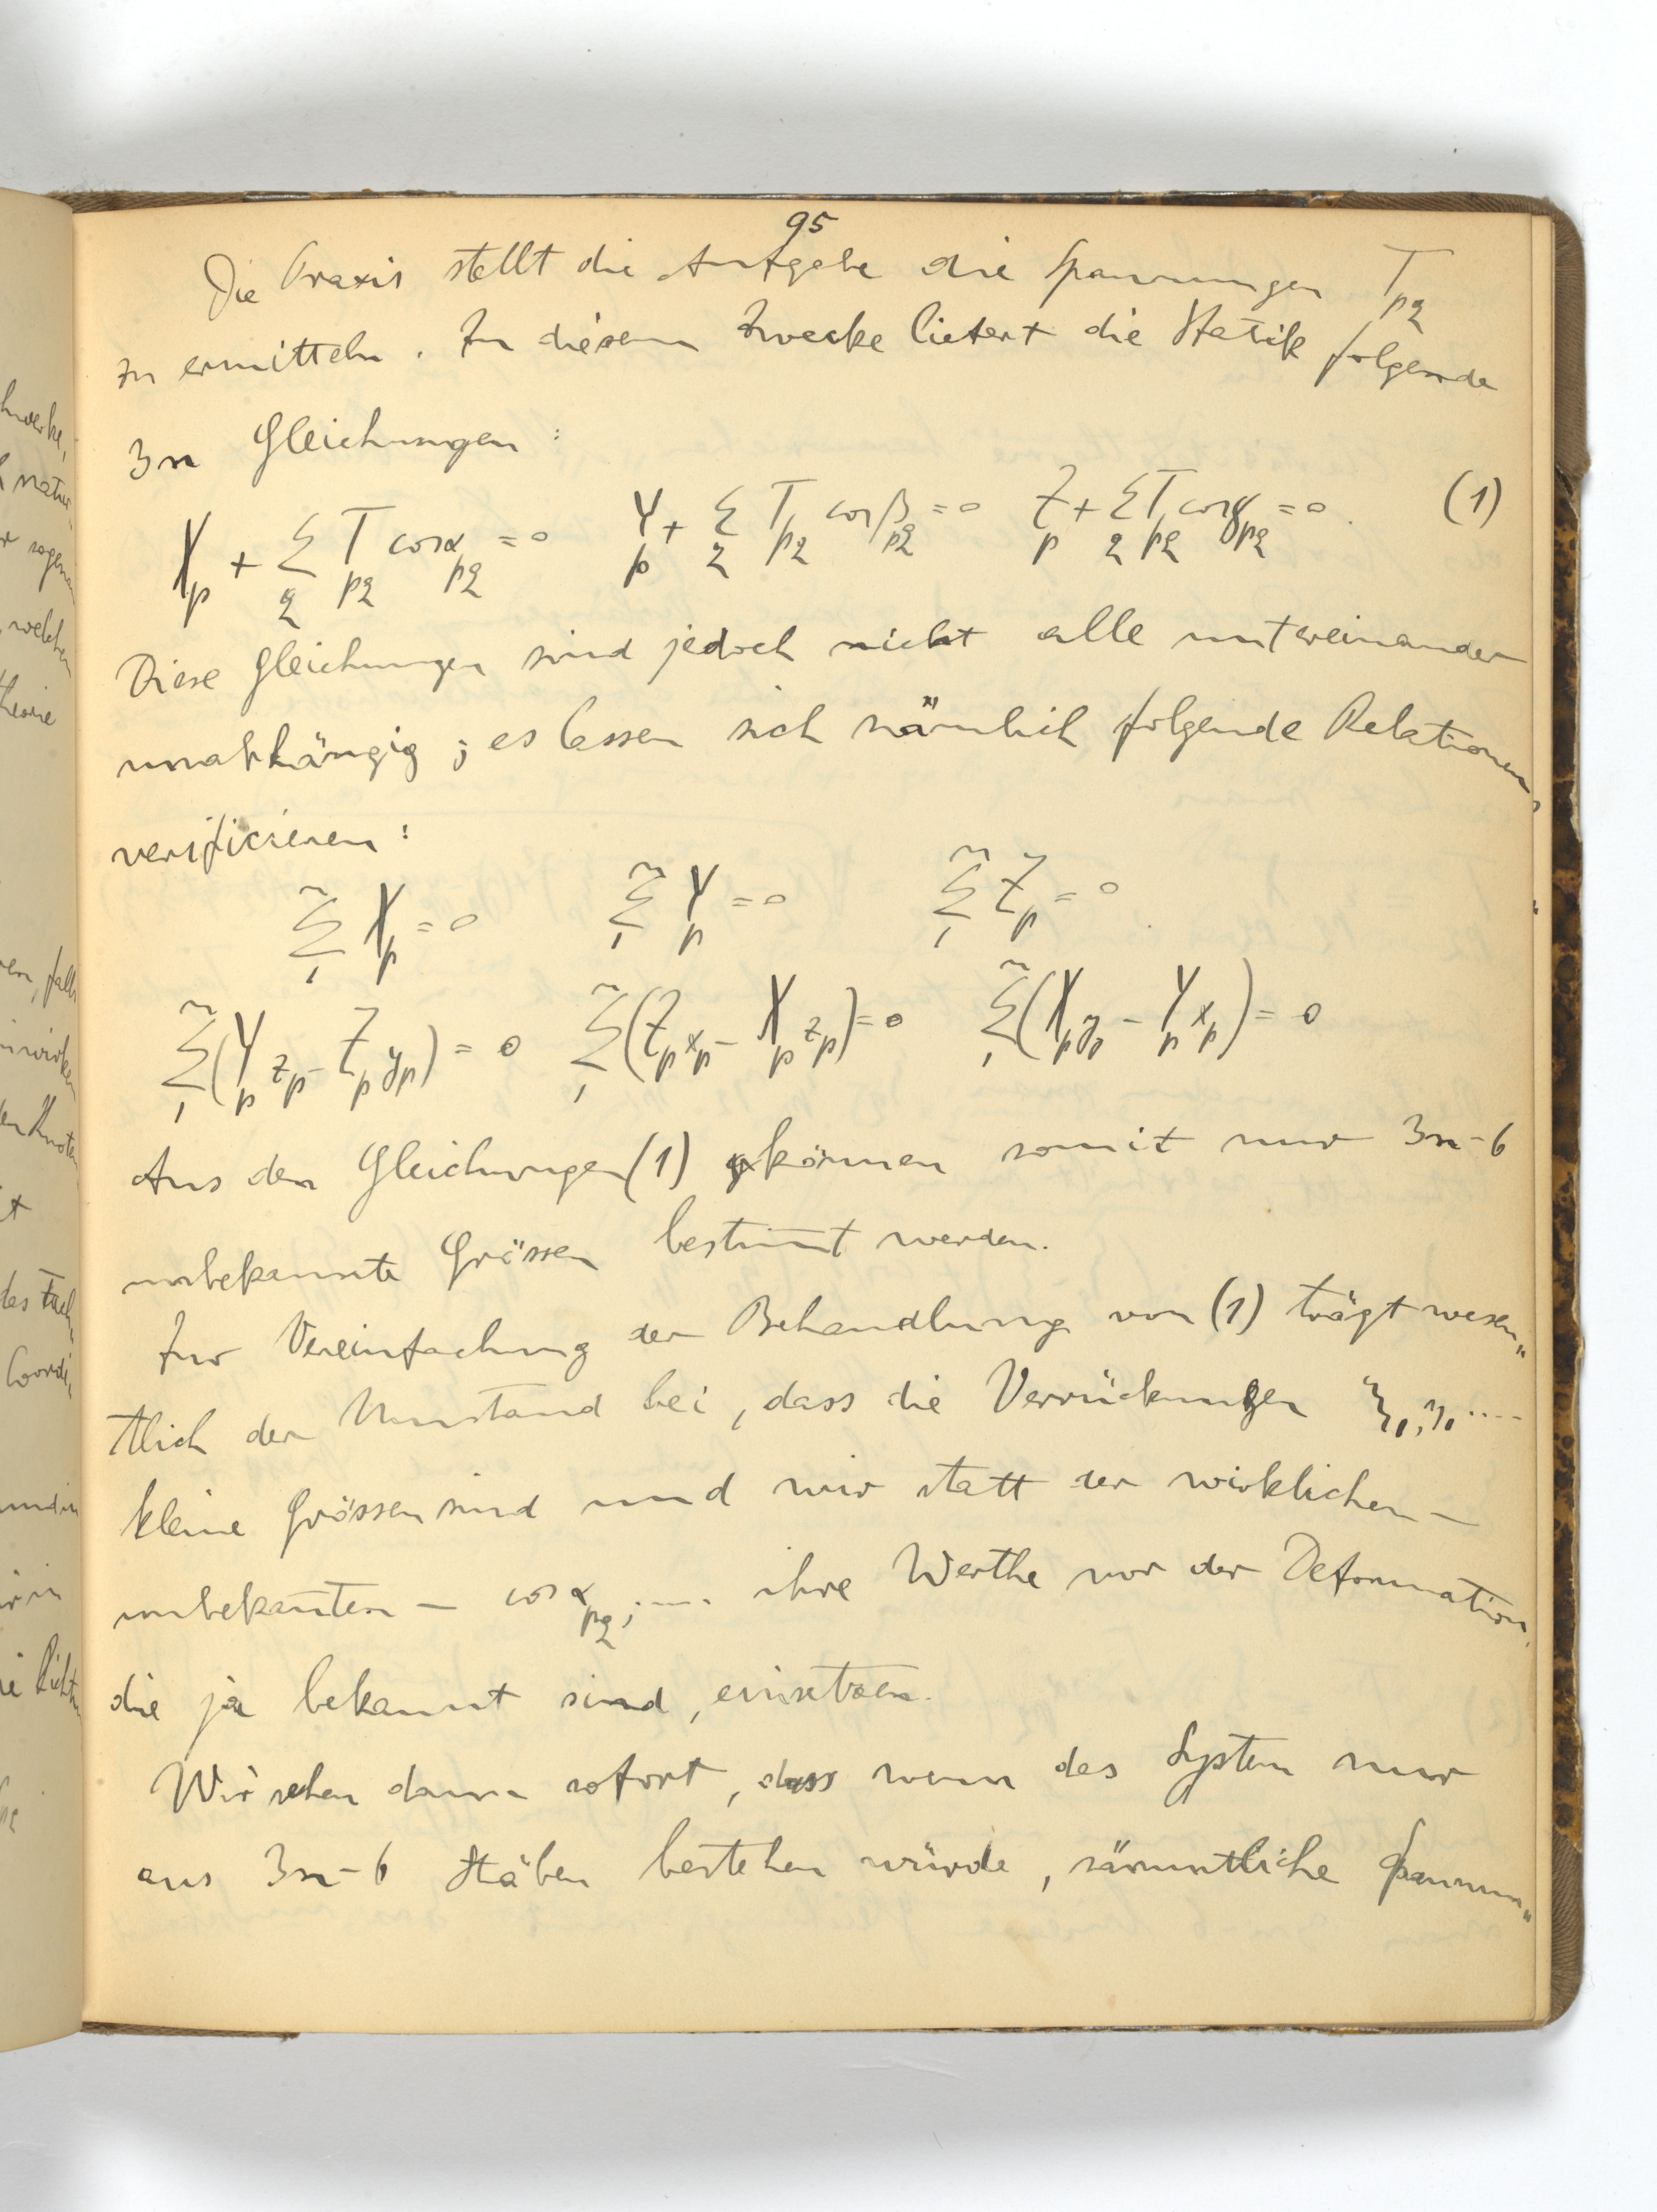 95
Die Praxis stellt die Aufgabe die Spannungen T_pq
zu ermitteln. Zu diesem Zwecke liefert die Statik folgende
3n Gleichungen:
X_p + Σ_q T_pq cosα_pq = 0 Y_p + Σ_q T_pq cosβ_pq = 0 Z_p + Σ_q T_pq cosγ_pq = 0. (1)
Diese Gleichungen sind jedoch nicht alle untereinander
unabhängig; es lassen sich nämlich folgende Relationen
verificieren:
Σ_1^n X_p = 0 Σ_1^n Y_p = 0 Σ_1^n Z_p = 0
Σ_1^n (Y_p z_p - Z_p y_p) = 0 Σ_1^n (Z_p x_p - X_p z_p) = 0 Σ_1^n (X_p y_p - Y_p x_p) = 0
Aus den Gleichungen (1) können somit nur 3n-6
unbekannte Grössen bestim̅t werden.
Zur Vereinfachung der Behandlung von (1) trägt wesen„
tlich der Umstand bei, dass die Verrückungen ξ_p, η_p ....
kleine Grössen sind und wir statt der wirklichen —
unbekan̅ten — cosα_pq, .... ihre Werthe vor der Deformation,
die ja bekannt sind, einsetzen.
Wir sehen dann sofort, dass wenn das System nur
aus 3n-6 Stäben bestehen würde, sämmtliche Spannun„
hwerke,
natur
r sogen
, welchen
theorie
en, falls
inwirken
den Knoten
it
des Fach
Coordi„